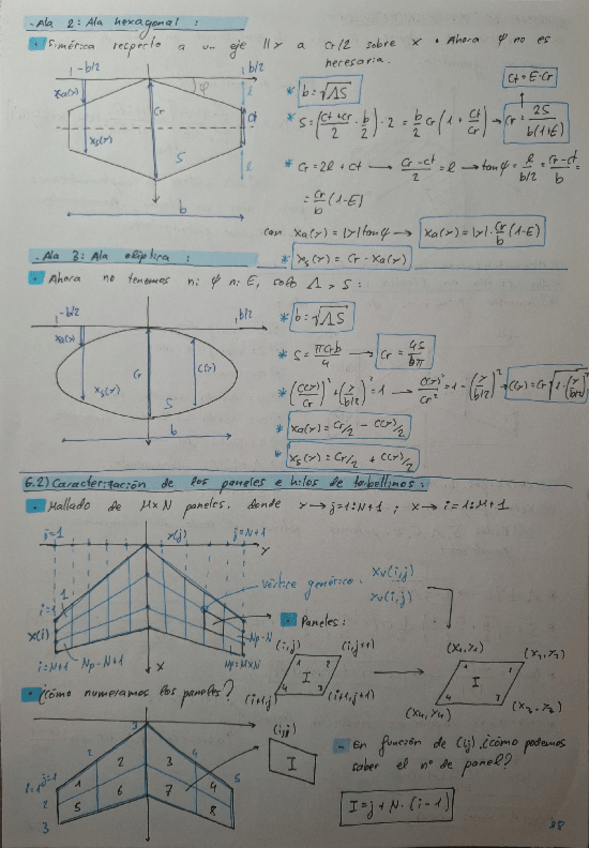 - Ala 2: Ala hexagonal:
• Simétrica respecto a un eje || Y a Cr/2 sobre X • Ahora φ no es
necesaria.
-b/2
b/2
Xa(Y)
φ
l
Cr
Ct
Xs(Y)
S
l
b
* b = √ΛS
Ct = E·Cr
* S = (Ct + Cr/2 · b/2) · 2 = b/2 Cr (1 + Ct/Cr) → Cr = 2S/b(1+E)
* Cr = 2l + Ct → Cr - Ct/2 = l → tan φ = l/b/2 = Cr - Ct/b =
= Cr/b (1-E)
con Xa(Y) = |Y| tan φ → Xa(Y) = |Y| · Cr/b (1-E)
* Xs(Y) = Cr - Xa(Y)
- Ala 3: Ala elíptica:
• Ahora no tenemos ni φ ni E, solo Λ y S:
-b/2
b/2
Xa(Y)
Cr
C(Y)
Xs(Y)
S
b
* b = √ΛS
* S = πCrb/4 → Cr = 4S/bπ
* (C(Y)/Cr)² + (Y/b/2)² = 1 → C(Y)²/Cr² = 1 - (Y/b/2)² → C(Y) = Cr √1 - (Y/b/2)²
* Xa(Y) = Cr/2 - C(Y)/2
* Xs(Y) = Cr/2 + C(Y)/2
6.2) Caracterización de los paneles e hilos de torbellinos:
• Mallado de M×N paneles, donde Y → j=1:N+1 ; X → i=1:M+1
j=1
Y(j)
j=N+1
Y
i=1
1
X(i)
Np-N
i=M+1
Np-N+1
X
Np=M×N
vórtice genérico.
Xv(i,j)
Yv(i,j)
• Paneles:
(i,j)
(i,j+1)
1
2
I
4
3
(i+1,j)
(i+1,j+1)
(X1,Y1)
(X2,Y2)
1
2
I
4
3
(X4,Y4)
(X3,Y3)
• ¿Cómo numeramos los paneles?
3
2
4
i=1
j=1
5
1
2
3
4
2
5
6
7
8
3
(i,j)
I
- En función de (i,j) ¿cómo podemos
saber el nº de panel?
I = j + N · (i-1)